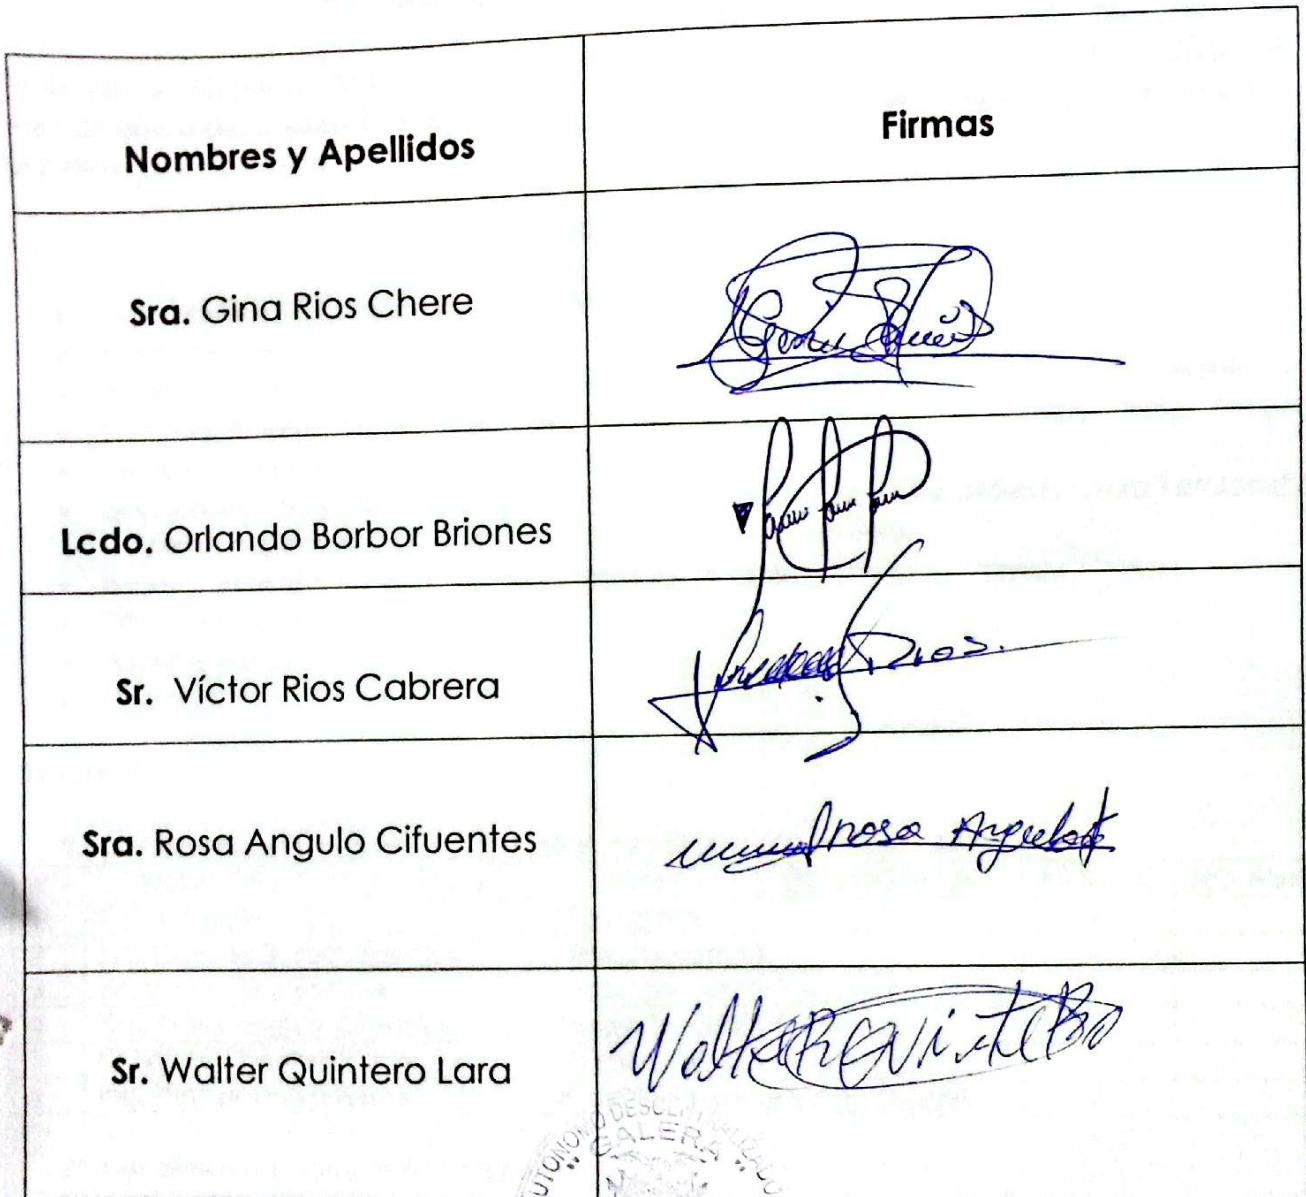 Nombres y Apellidos
Firmas
Sra. Gina Rios Chere
Lcdo. Orlando Borbor Briones
Sr. Víctor Rios Cabrera
Rios.
Sra. Rosa Angulo Cifuentes
rosa Angulo
Sr. Walter Quintero Lara
WalteR QVinteRo
AUTONOMO DESCENTRALIZADO
"GALERA"